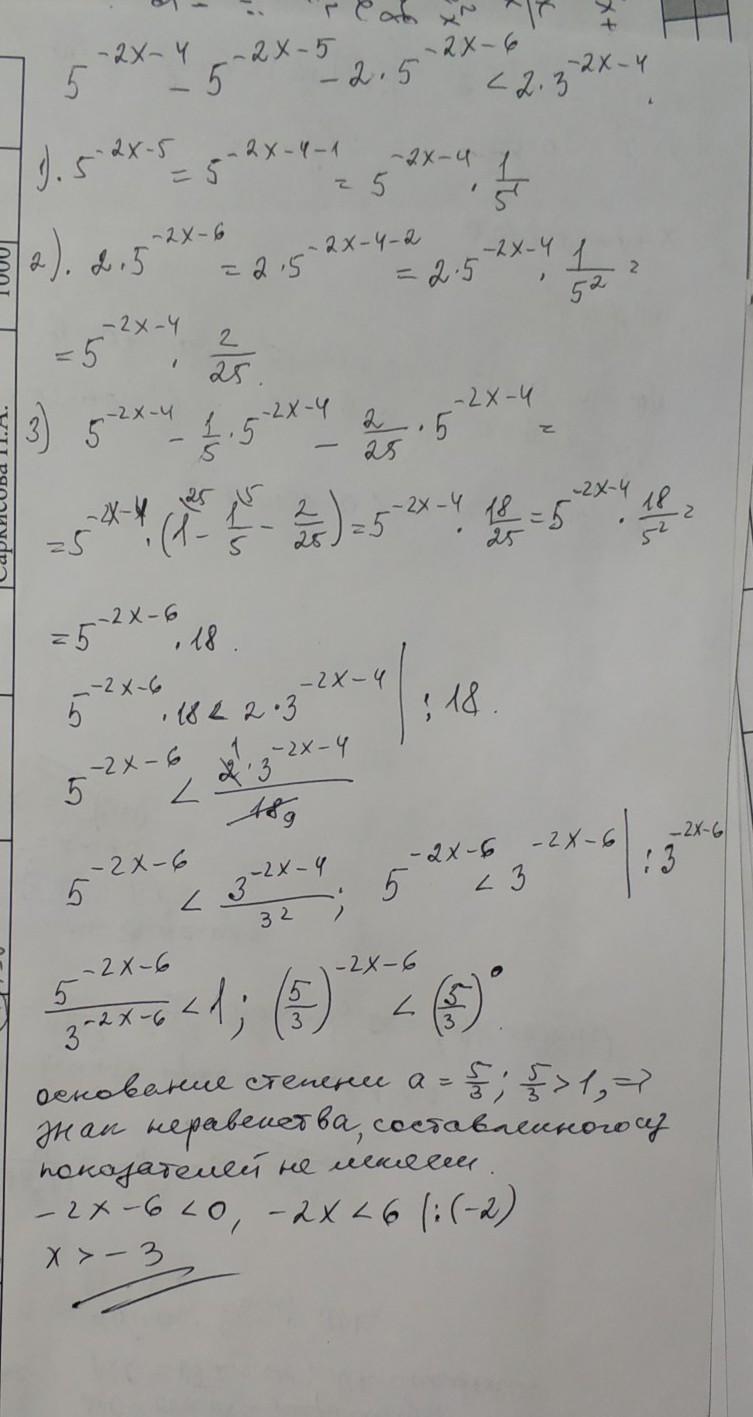 5^{-2x-4} - 5^{-2x-5} - 2·5^{-2x-6} < 2·3^{-2x-4}.
1). 5^{-2x-5} = 5^{-2x-4-1} = 5^{-2x-4} · \frac{1}{5^1}
2). 2·5^{-2x-6} = 2·5^{-2x-4-2} = 2·5^{-2x-4} · \frac{1}{5^2} =
= 5^{-2x-4} · \frac{2}{25}.
3) 5^{-2x-4} - \frac{1}{5}·5^{-2x-4} - \frac{2}{25}·5^{-2x-4} =
= 5^{-2x-4}·(1^{25} - \frac{1}{5}^{5} - \frac{2}{25}) = 5^{-2x-4} · \frac{18}{25} = 5^{-2x-4} · \frac{18}{5^2} =
= 5^{-2x-6} · 18.
5^{-2x-6} · 18 < 2·3^{-2x-4} | : 18.
5^{-2x-6} < \frac{2^{1}·3^{-2x-4}}{18_{9}}
5^{-2x-6} < \frac{3^{-2x-4}}{3^2}; 5^{-2x-6} < 3^{-2x-6} | : 3^{-2x-6}
\frac{5^{-2x-6}}{3^{-2x-6}} < 1; (\frac{5}{3})^{-2x-6} < (\frac{5}{3})^0.
основание степени a = \frac{5}{3}; \frac{5}{3} > 1, =>
знак неравенства, составленного из
показателей не меняем.
-2x-6 < 0, -2x < 6 |:(-2)
x > -3
1000
Саркисова П.А.